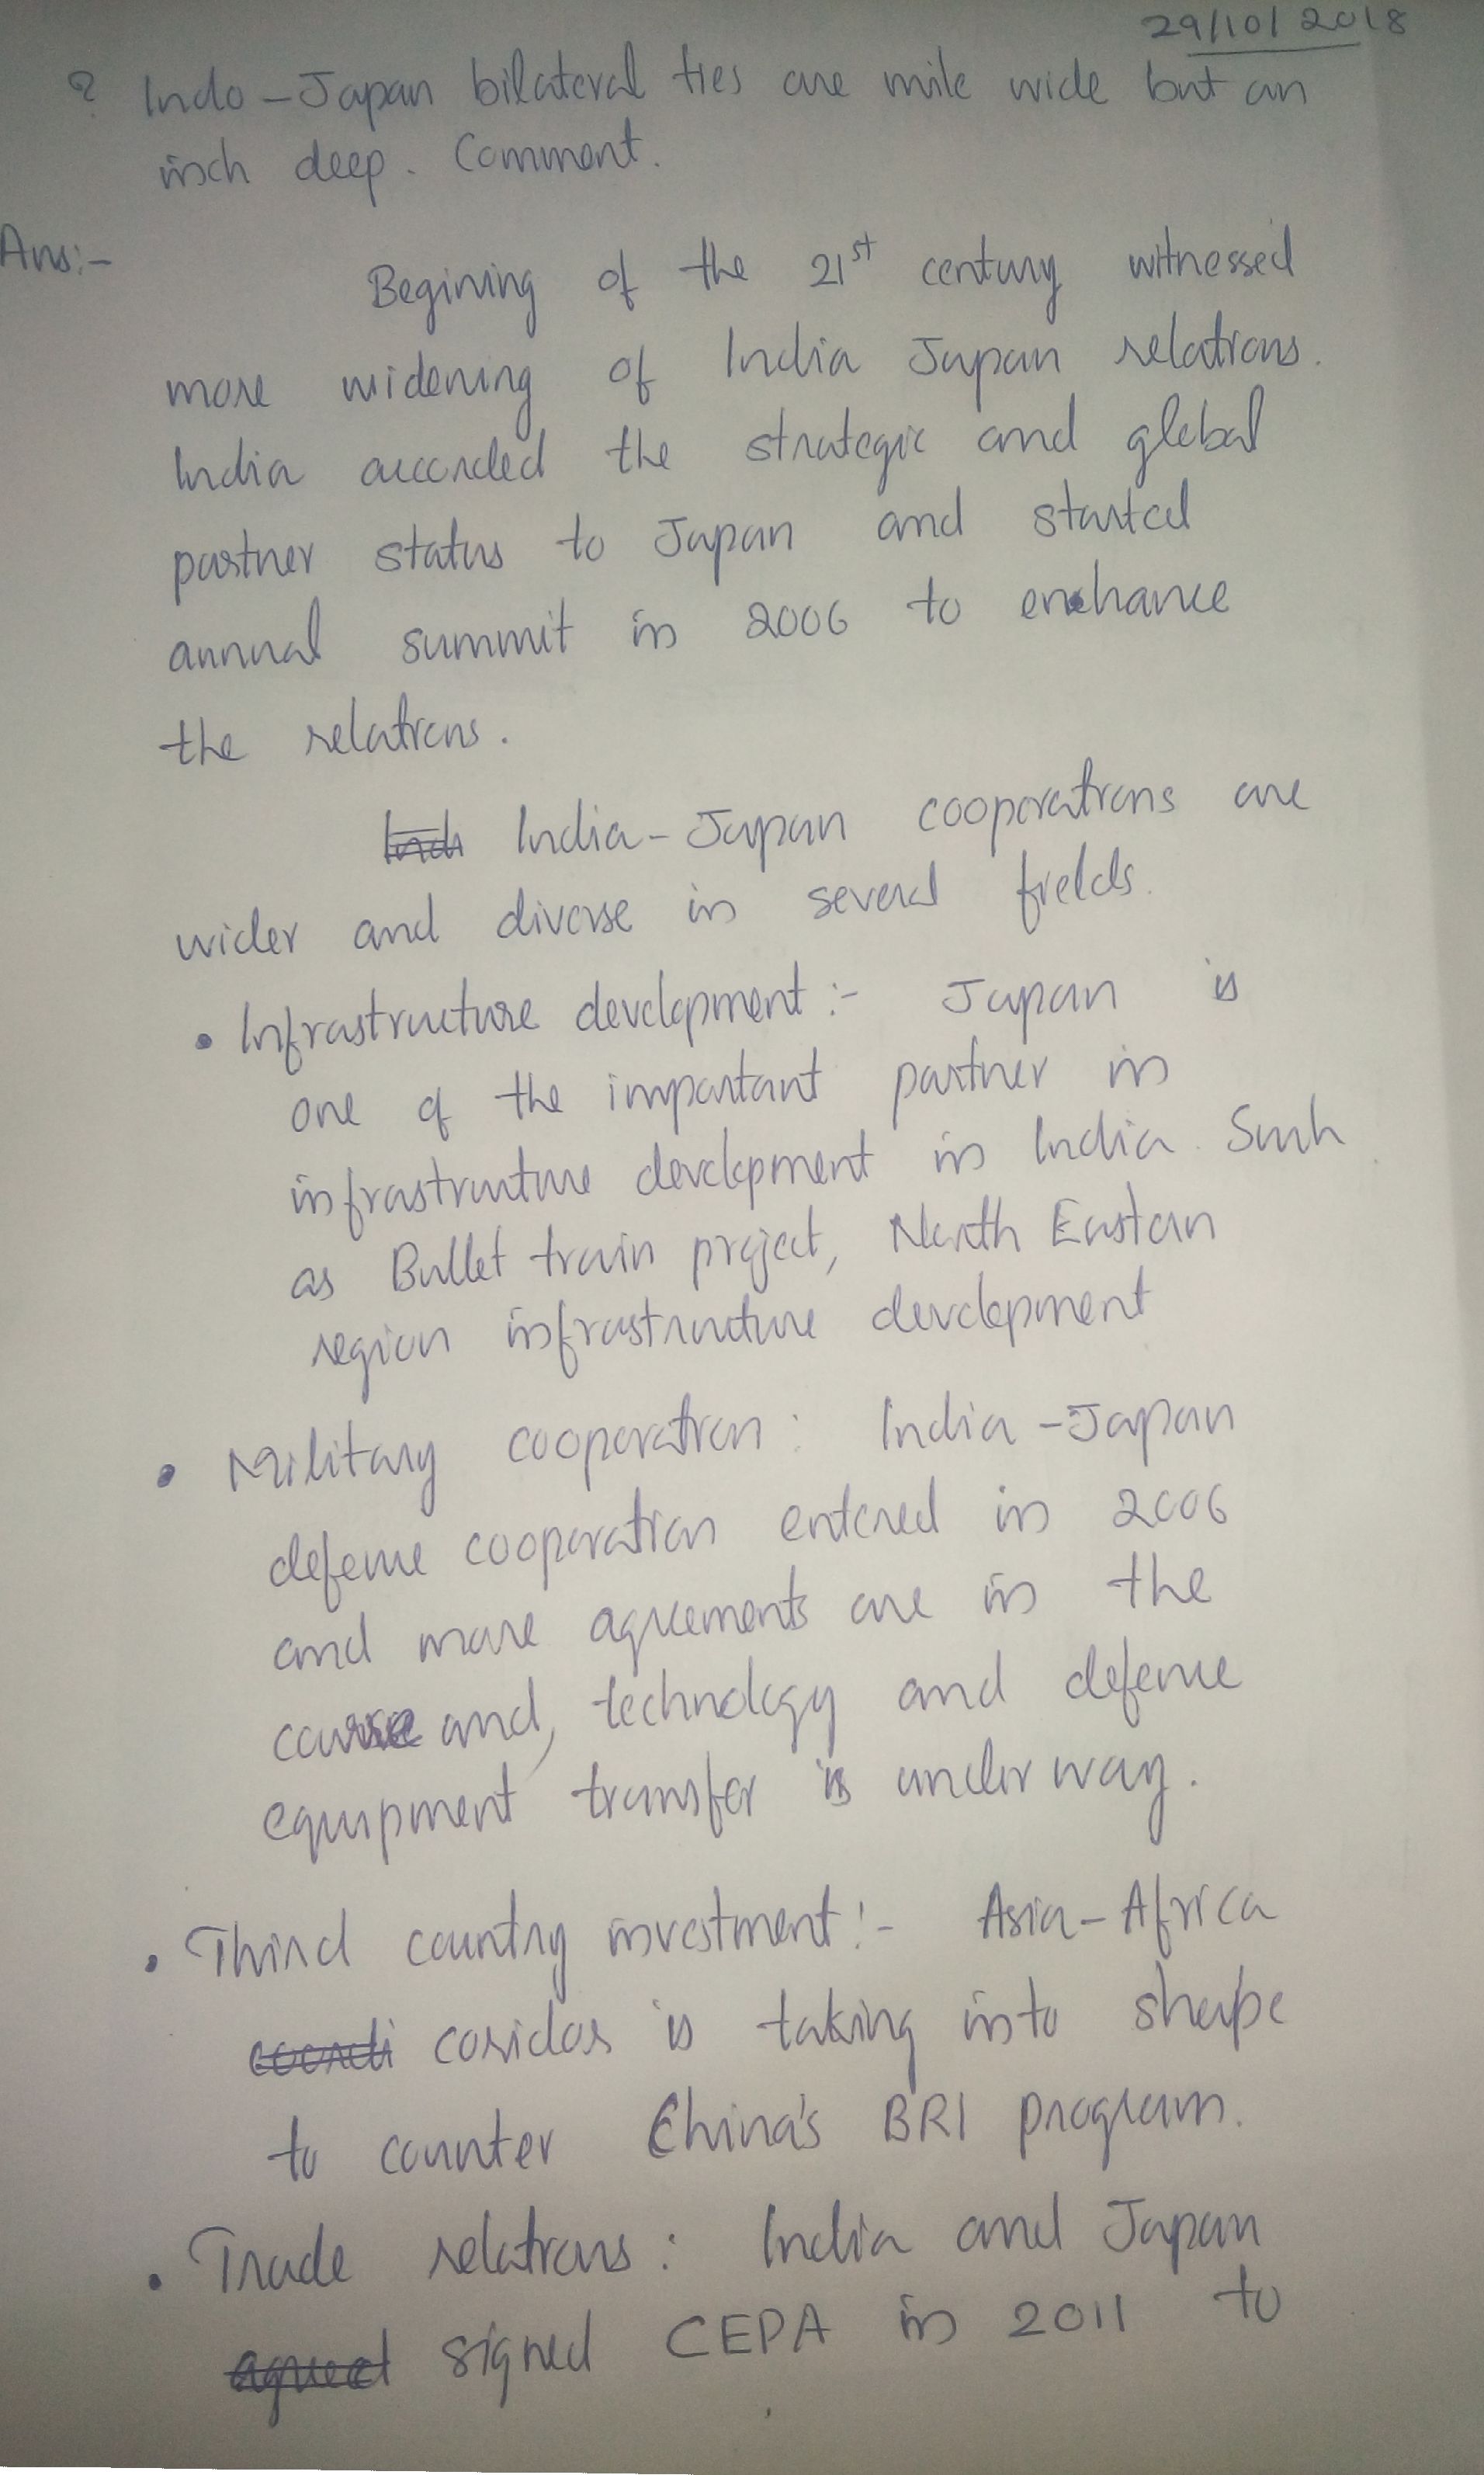 29/10/2018
? Indo-Japan bilateral ties are mile wide but an
inch deep. Comment.
Ans:-
Begining of the 21st century witnessed
more widening of India Japan relations.
India accorded the strategic and global
partner status to Japan and started
annual summit in 2006 to enhance
the relations.
India-Japan cooperations are
wider and diverse in several fields.
• Infrastructure development:- Japan is
one of the important partner in
infrastructure development in India. Such
as Bullet train project, North Eastern
region infrastructure development
• Military cooperation: India-Japan
defence cooperation entered in 2006
and more agreements are in the
course and, technology and defence
equipment transfer is underway.
• Third country investment:- Asia-Africa
coordi coridor is taking into shape
to counter China's BRI program.
• Trade relations: India and Japan
agreed signed CEPA in 2011 to